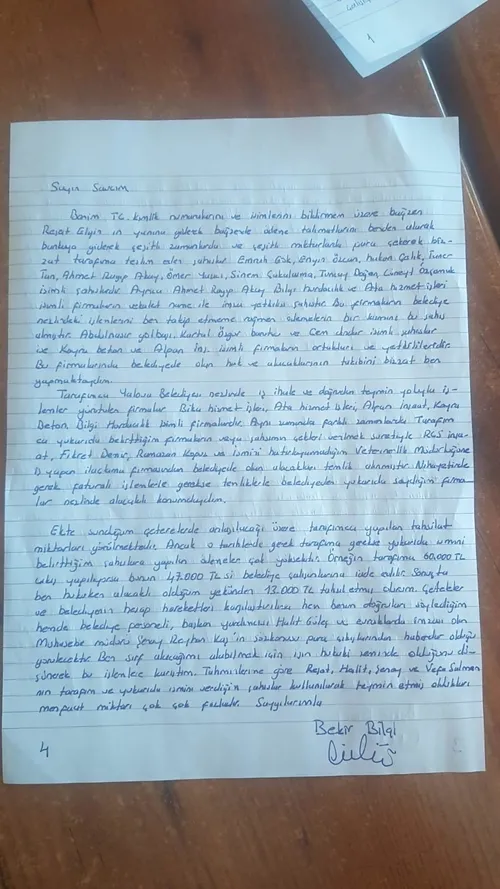 Sayın Savcım
Benim TC. kimlik numaralarını ve isimlerini bildirmem üzere bağzen
Reşat Elgin in yanına giderek bağzende ödeme talimatlarını benden alarak
bankaya giderek çeşitli zamanlarda ve çeşitli miktarlarda para çekerek biz-
zat tarafıma teslim eden şahıslar Emrah Gök, Engin Özcan, hakan Çalık, Tuner
Tan, Ahmet Ragıp Atay, Ömer Sinem Tuncay Doğan, Cüneyt
isimli şahıslardır. Ayrıca Ahmet Ragıp Atay Bilgi Hurdacılık ve Ata hizmet işleri
isimli firmaların vekalet name ile imza yetkilisi şahıstır. Bu firmaların belediye
nezdindeki işlemlerini ben takip etmeme rağmen ödemelerin bir kısmını bu şahıs
almıştır. Abdulnasır yolbaşı, Kartal Özgür ve Cem isimli şahıslar
ise Kayra beton ve Alpan inş. isimli firmaların ortakları ve yetkilileridir.
Bu firmalarında belediyede olan hak ve alacaklarının takibini bizzat ben
yapmaktaydım.
Tarafımca Yalova Belediyesi nezdinde iş ihale ve doğrudan temin yoluyla iş-
lemler yürütülen firmalar Bika hizmet işleri, Ata hizmet işleri, Alpan inşaat, Kayra
Beton, Bilgi Hurdacılık isimli firmalardır. Aynı zamanda farklı zamanlarda Tarafım
ca yukarıda belirttiğim firmaların veya şahsımın çekleri verilmek suretiyle RGS inşa-
at, Fikret Demir, Ramazan Kapus ve ismini hatırlayamadığım Veterinerlik Müdürlüğüne
iş yapan ilaçlama firmasından belediyede olan alacakları temlik alınmıştır. Nihayetinde
gerek faturalı işlemlerle gerekse temliklerle belediyeden yukarıda saydığım firma-
lar nezdinde alacaklı konumdaydım.
Ekte sunduğum çetelelerde anlaşılacağı üzere tarafımca yapılan tahsilat
miktarları görülmektedir. Ancak o tarihlerde gerek tarafıma gerekse yukarıda ismini
belirttiğim şahıslara yapılan ödemeler çok yüksektir. Örneğin tarafıma 60.000 TL
çıkış yapılıyorsa bunun 47.000 TL si belediye çalışanlarına iade edilir. Sonuçta
ben hukuken alacaklı olduğum yekünden 13.000 TL tahsil etmiş olurum. Çeteleler
ve belediyenin hesap hareketleri karşılaştırılınca hem benim doğruları söylediğim
hemde belediye personeli, başkan yardımcısı Halit Güleç ve evraklarda imzası olan
Muhasebe müdürü Şenay Reyhan Kuş'in sözkonusu para çıkışlarından haberdar olduğu
görülecektir. Ben sırf alacağımı alabilmek için işin hukuki zeminde olduğunu dü-
şünerek bu işlemlere karıştım. Tahminlerime göre Reşat, Halit, Şenay ve Vefa Salman
nın tarafım ve yukarıda ismini verdiğim şahıslar kullanılarak temin etmiş oldukları
menfaat miktarı çok çok fazladır. Saygılarımla
Bekir Bilgi
4